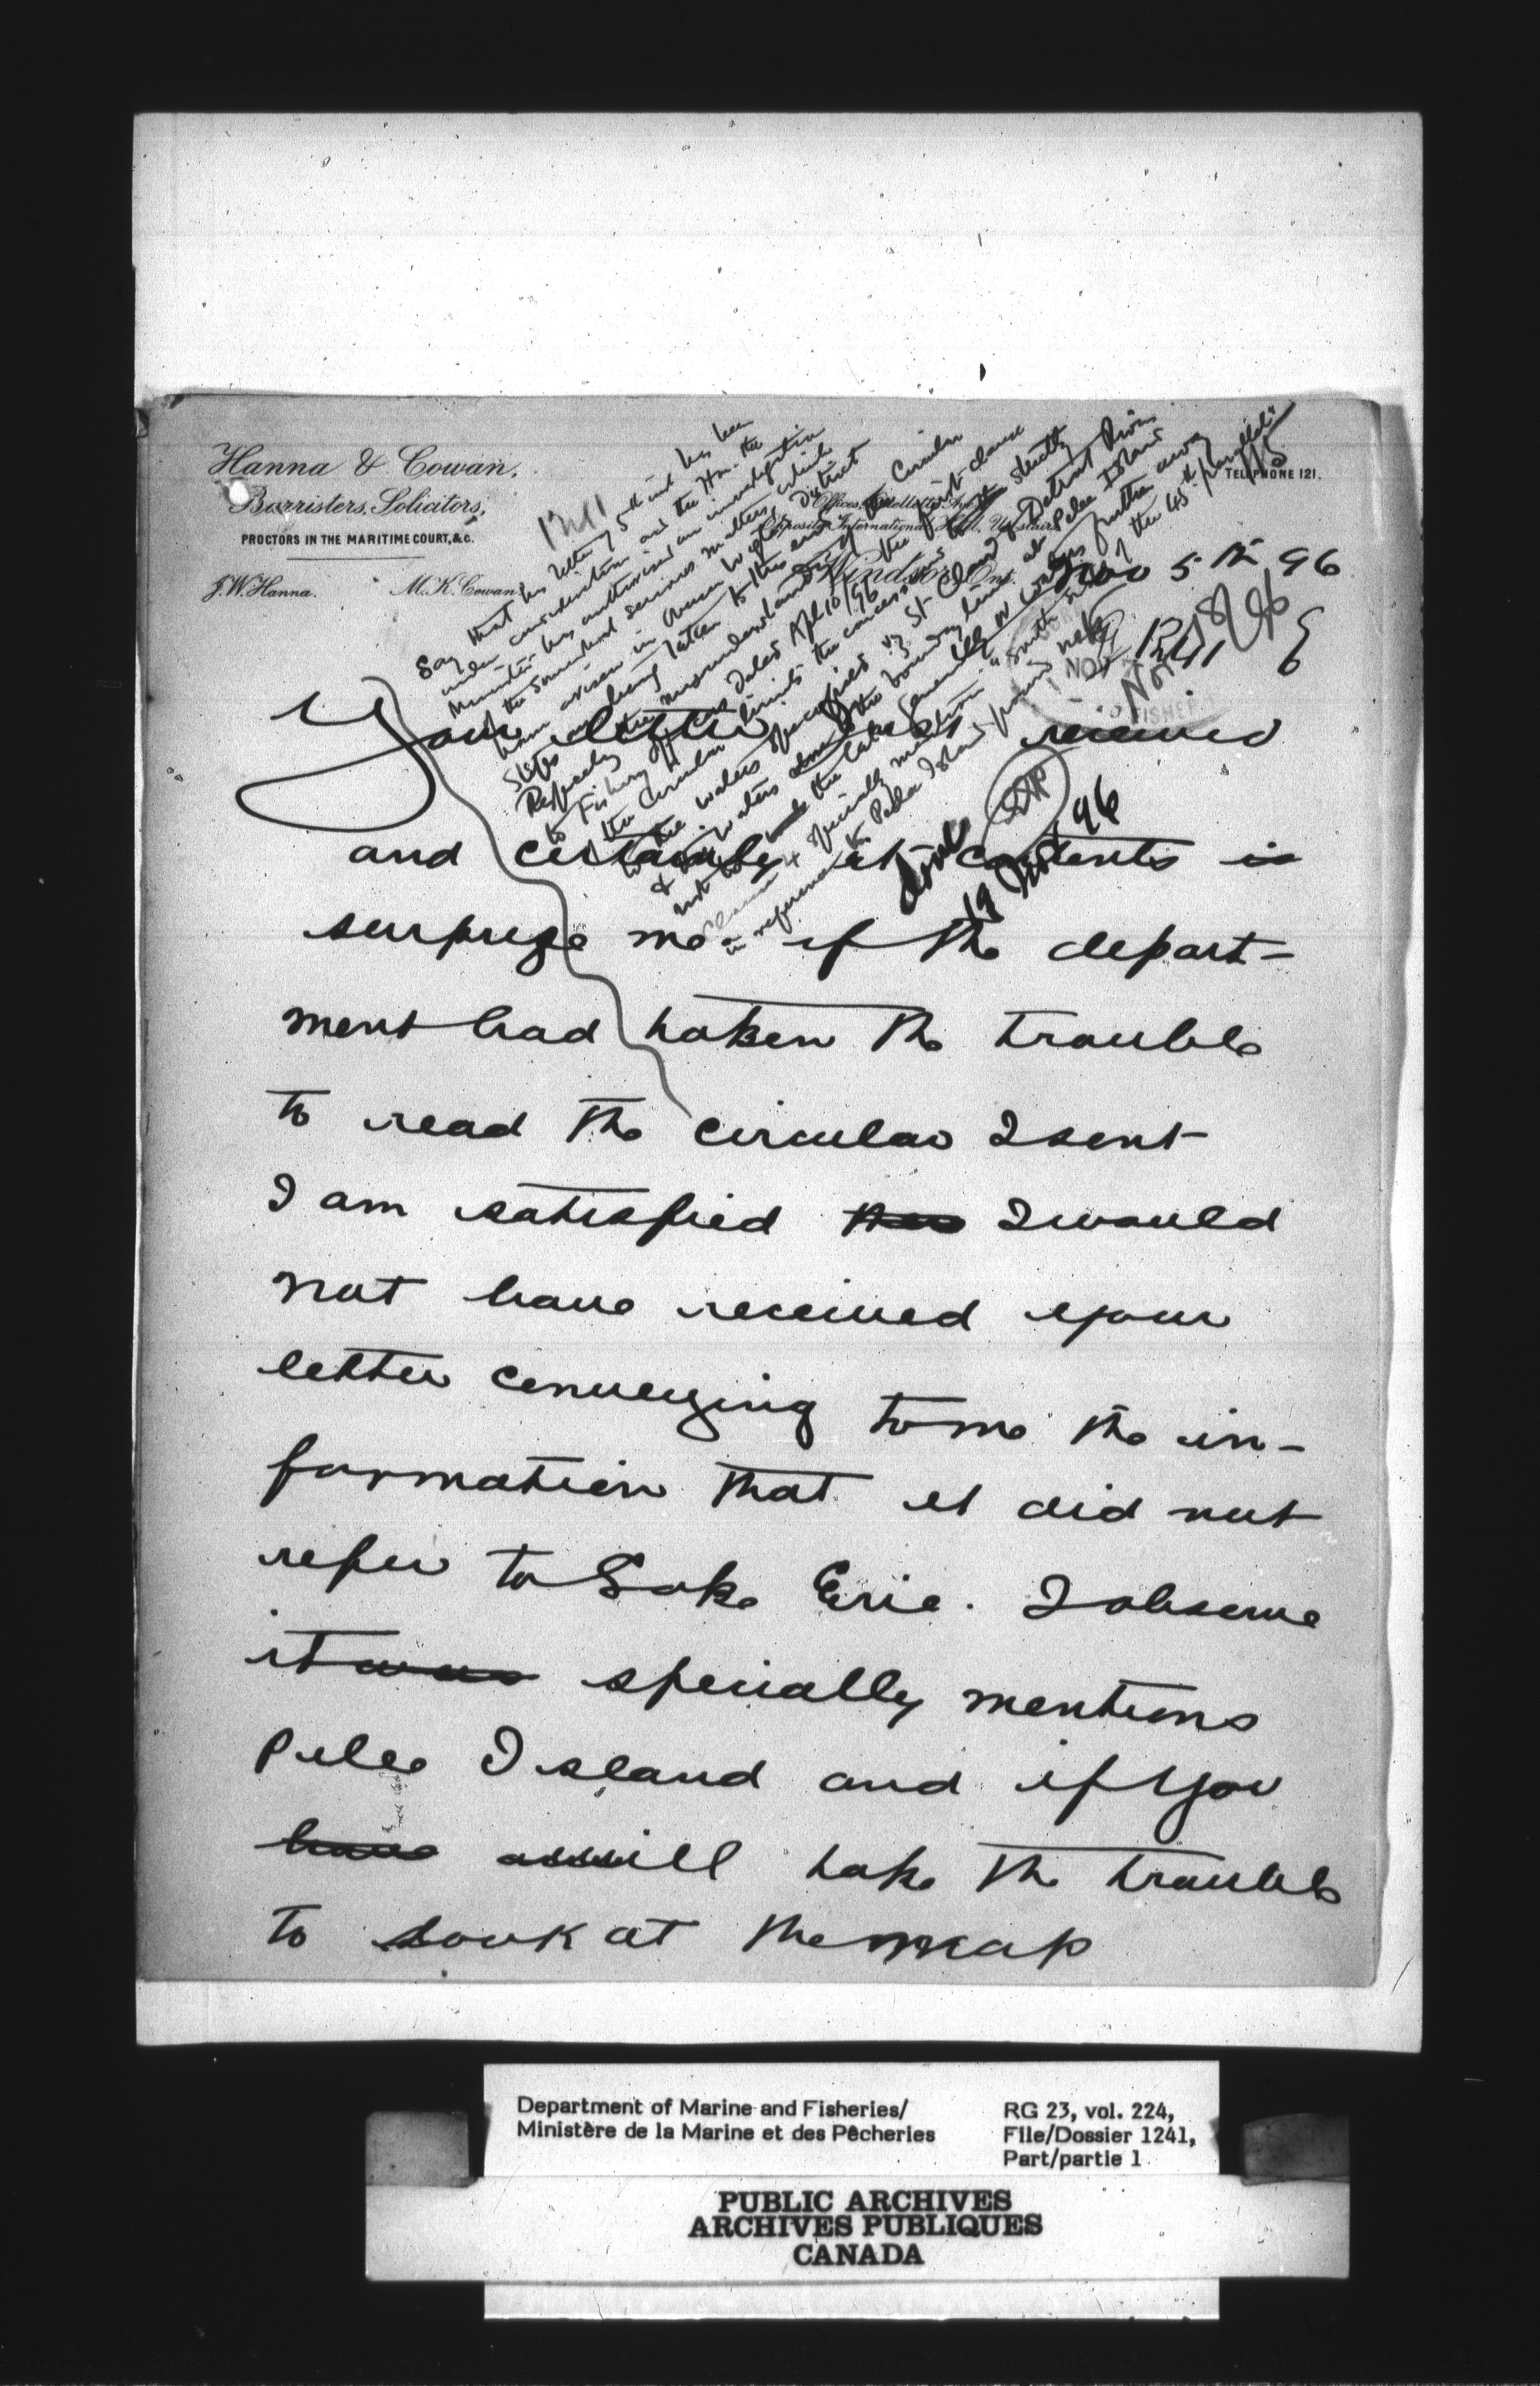 Hanna & Cowan,
Barristers, Solicitors,
PROCTORS IN THE MARITIME COURT, & C.
J. W. Hanna. M. K. Cowan
Offices, Ouellette Ave.
Opposite International Hotel, Upstairs
TELEPHONE 121.
Windsor, Ont. Nov 5th 96
1241
1241
Nov 8/96
Say that his letter of 5th inst has been
under consideration and the Hon. the
Minister has authorised an investigation
of the somewhat serious matters which
have arisen in
Steps are being taken to this end
Respecting the misunderstanding of the Circular
to Fishery dated Apl 10/96 the first clause
of the Circular limits the concession strictly
to the waters specified viz St Clair & Detroit River
& waters the boundary line at Pelee Island
not to the lake generally or waters further away
specially mention "south of the 45th parallel"
in reference to Pelee Island pound nets
done
19 Nov 96
Your letter received
and certainly its contents is
surprize me. if the depart-
ment had taken the trouble
to read the circular I sent
I am satisfied I would
not have received your
letter conveying to me the in-
formation that it did not
refer to Lake Erie. I observe
it was specially mentions
Pelee Island and if you
have will take the trouble
to look at the map
Department of Marine and Fisheries/
Ministère de la Marine et des Pêcheries
RG 23, vol. 224,
File/Dossier 1241,
Part/partie 1
PUBLIC ARCHIVES
ARCHIVES PUBLIQUES
CANADA